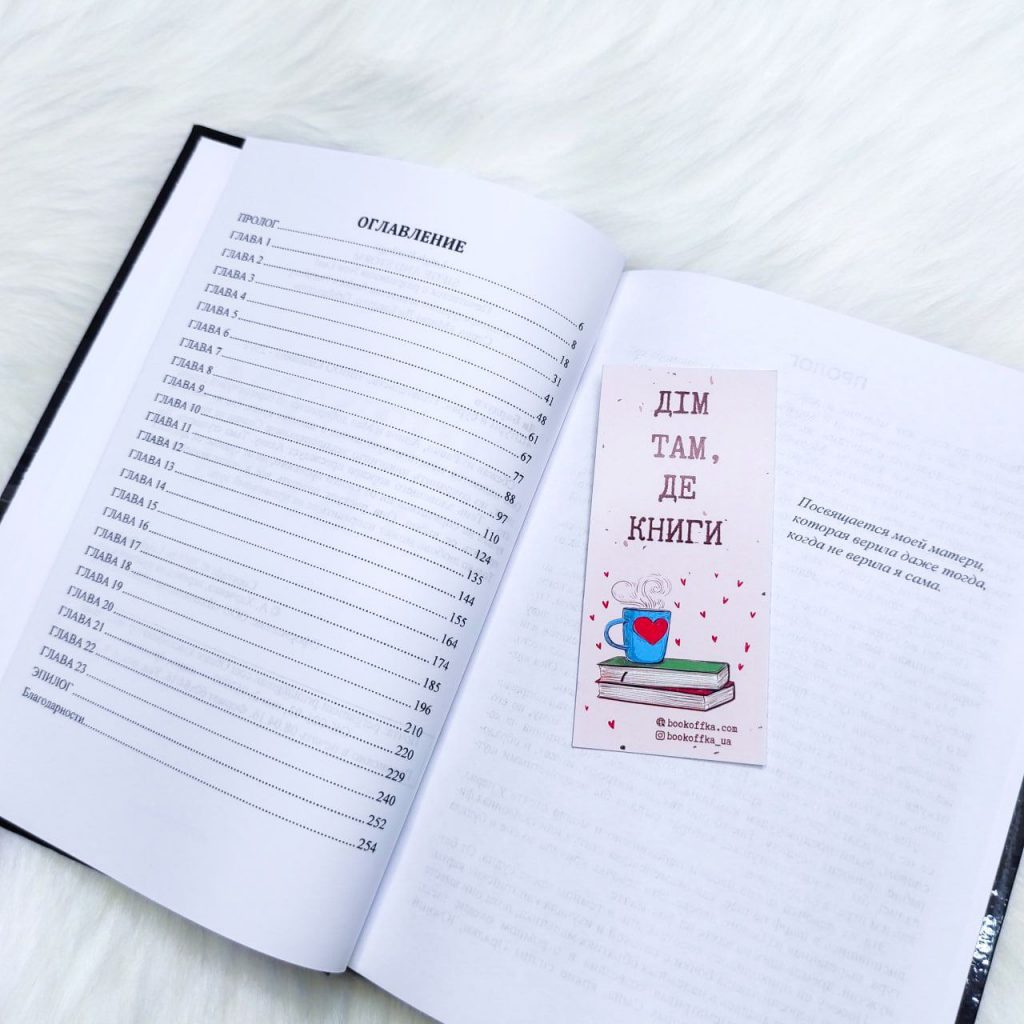 ОГЛАВЛЕНИЕ
ПРОЛОГ 6
ГЛАВА 1 8
ГЛАВА 2 18
ГЛАВА 3 31
ГЛАВА 4 41
ГЛАВА 5 48
ГЛАВА 6 61
ГЛАВА 7 67
ГЛАВА 8 77
ГЛАВА 9 88
ГЛАВА 10 97
ГЛАВА 11 110
ГЛАВА 12 124
ГЛАВА 13 135
ГЛАВА 14 144
ГЛАВА 15 155
ГЛАВА 16 164
ГЛАВА 17 174
ГЛАВА 18 185
ГЛАВА 19 196
ГЛАВА 20 210
ГЛАВА 21 220
ГЛАВА 22 229
ГЛАВА 23 240
ЭПИЛОГ 252
Благодарности 254
ДІМ
ТАМ,
ДЕ
КНИГИ
bookoffka.com
bookoffka_ua
Посвящается моей матери,
которая верила даже тогда,
когда не верила я сама.